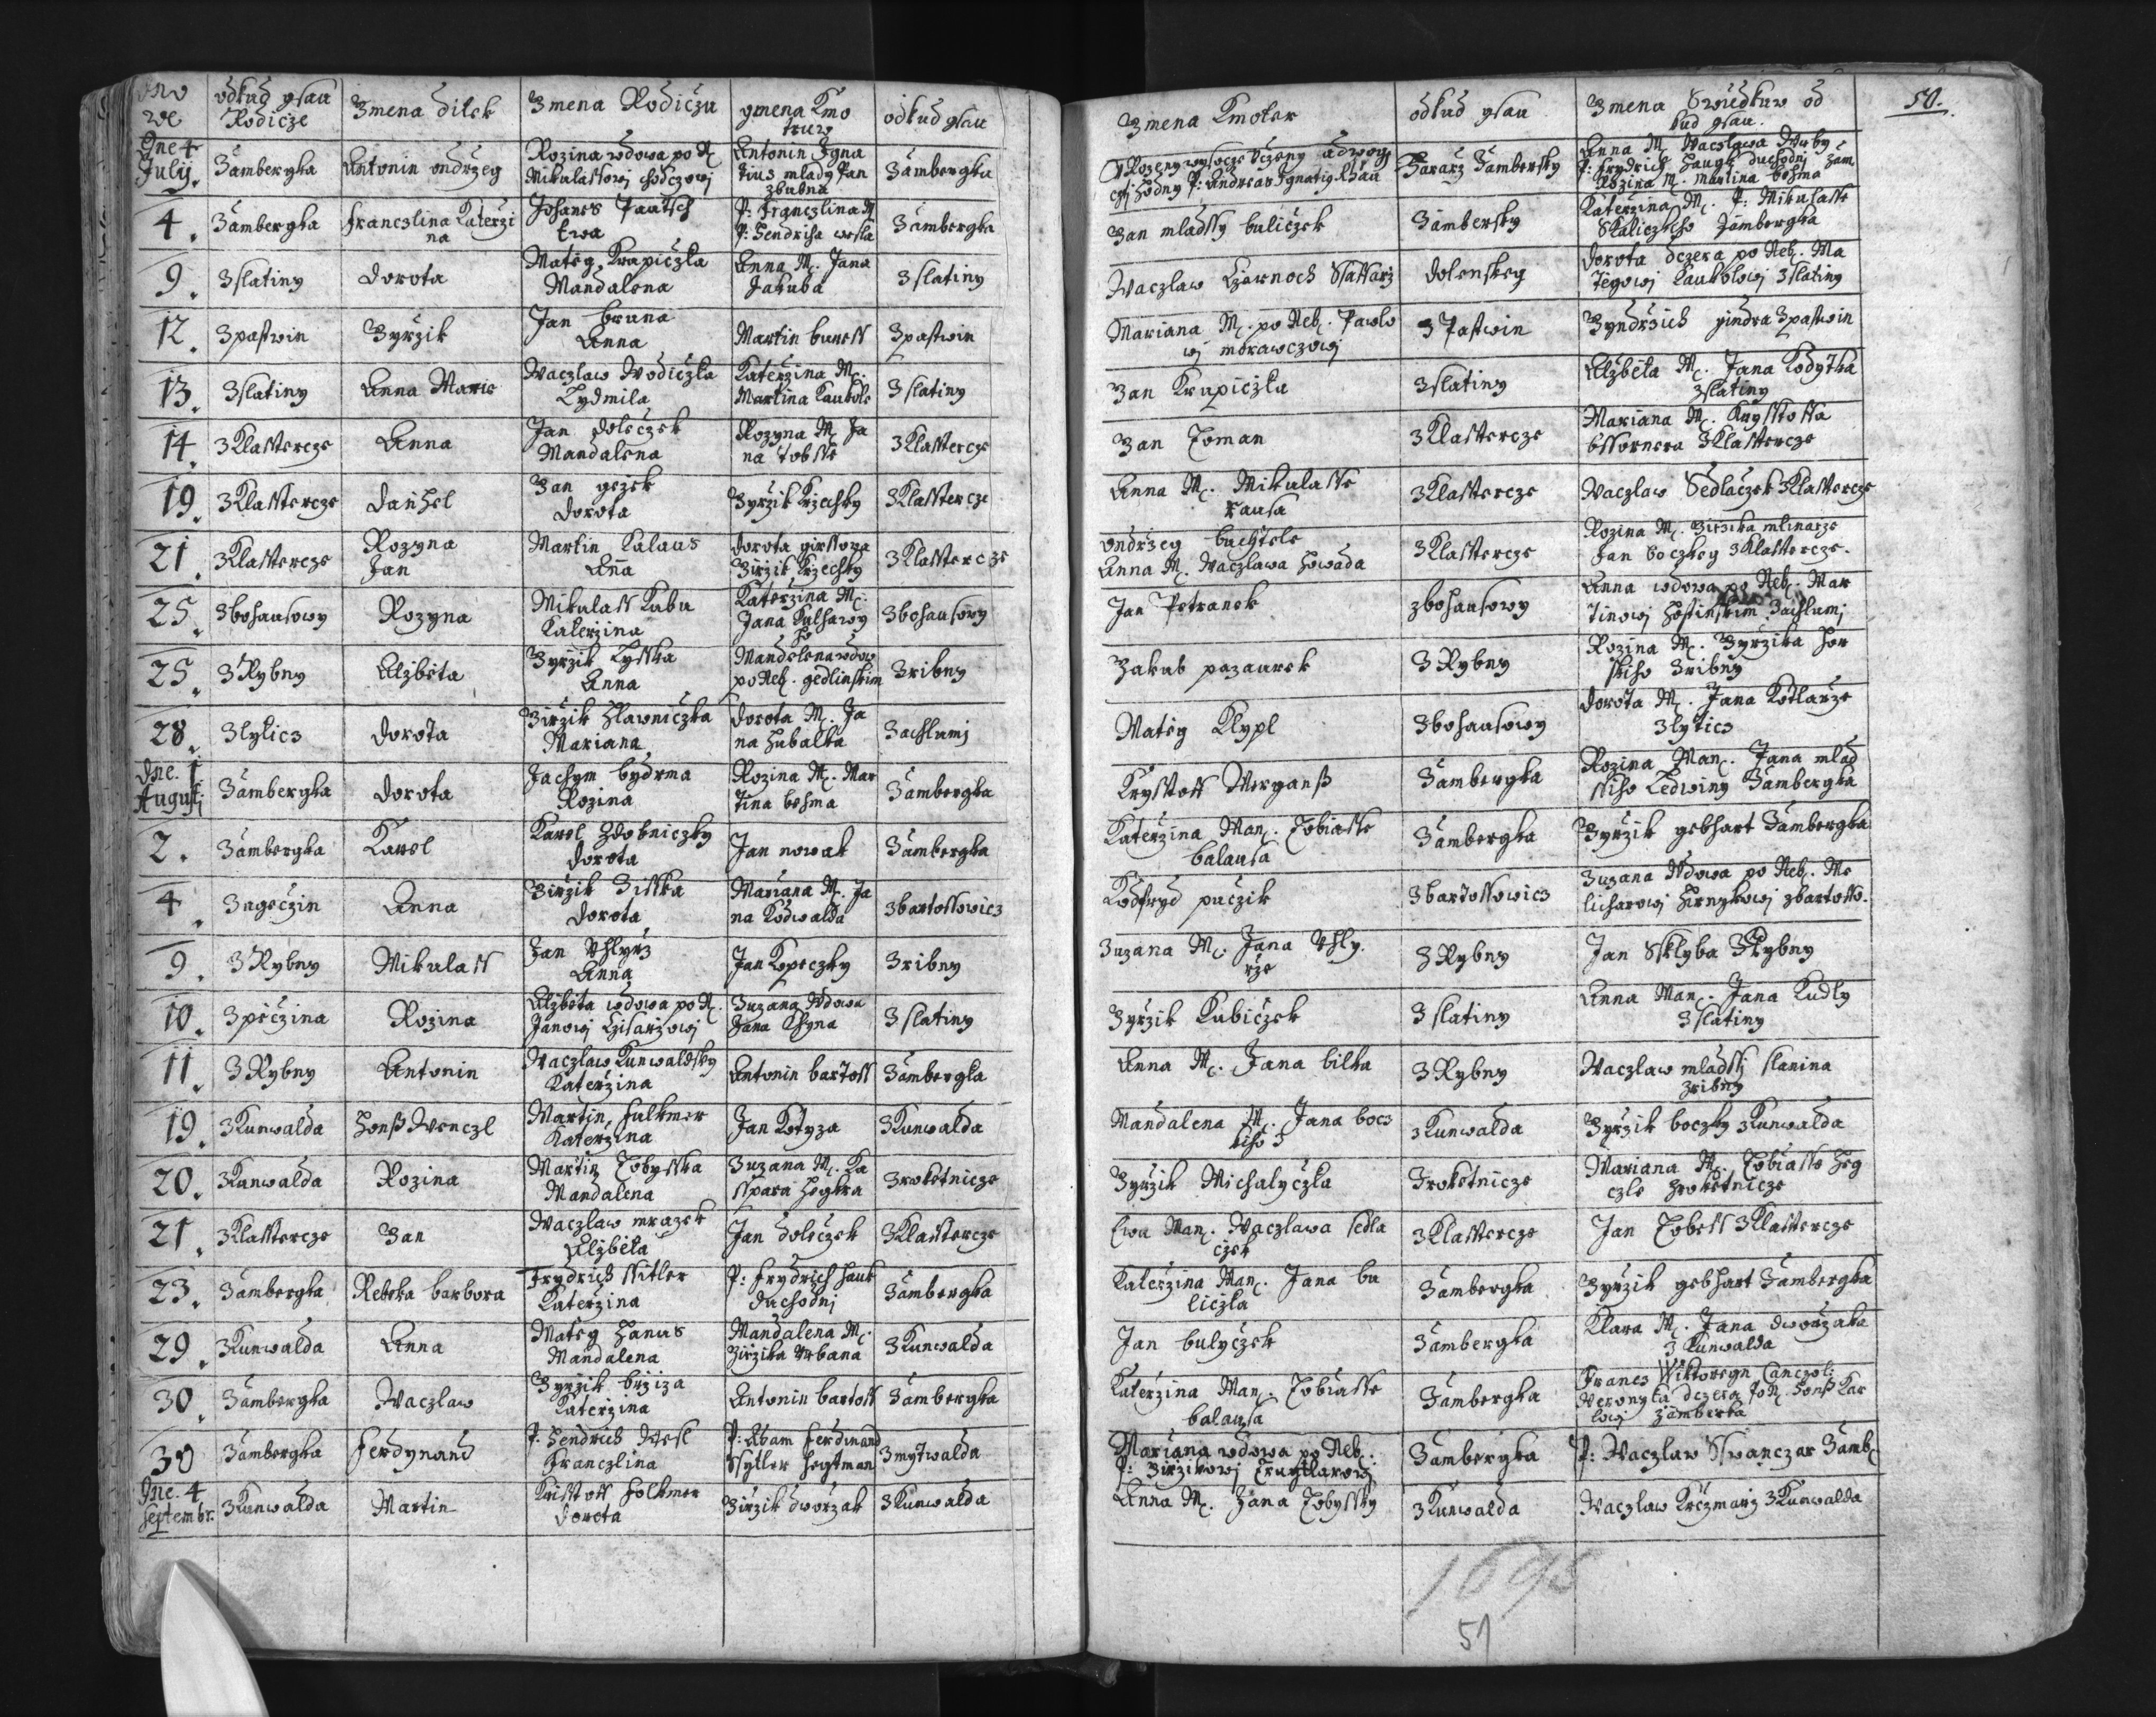 dno
we
odkud gsau
Rodicze
Jmena ditek
Jmena Rodiczu
gmena Kmo
truw
odkud gsau
Dne 4
July.
Zambergka
Antonin ondrzeg
Rozina wdowa po N.
Mikulassowj
Antonin Igna
tius mlady Jan
Zambergka
4.
Zambergka
Franczlina Katerzi
na
Johanes Pautsch
Ewa
P: Franczlina M.
P: Hendricha wesla
Zambergka
9.
Zslatiny
Dorota
Mateg Krapiczka
Mandalena
Anna M. Jana
Jakuba
Zslatiny
12.
Zpastwin
Gyrzik
Jan bruna
Anna
Martin baness
Zpastwin
13.
Zslatiny
Anna Marie
Waczlaw Wodiczka
Lydmila
Katerzina M.
Martina Kaukole
Zslatiny
14.
ZKlasstercze
Anna
Jan doleczek
Mandalena
Rozyna M. Ja
na tobsse
ZKlasstercze
19.
ZKlasstercze
Daniel
Jan gezek
Dorota
Gyrzik Krzechky
ZKlasstercze
21.
ZKlasstercze
Rozyna
Jan
Martin Kalaus
Anna
Dorota girssowa
Girzik Krzechky
ZKlasstercze
25.
Zbohausowy
Rozyna
Mikulass Kuba
Katerzina
Katerzina M.
Jana Kulhawy
ho
Zbohausowy
25.
ZRybny
Alzbeta
Gyrzik Lysska
Anna
Mandelena wdow
po Neb. gedlinskim
Zribny
28.
Zlyticz
Dorota
Girzik Hlawniczka
Mariana
Dorota M. Ja
na Hubalka
Zachlumj
Dne. 1
Augusti
Zambergka
Dorota
Jachym bydrma
Rozina
Rozina M. Mar
tina behma
Zambergka
2.
Zambergka
Karel
Karel Zdobniczky
Dorota
Jan nowak
Zambergka
4.
Zngeczin
Anna
Girzik Zisska
Dorota
Mariana M. Ja
na Kodwalda
Zbartossowicz
9.
ZRybny
Mikulass
Jan Uhlyrz
Anna
Jan Kopeczky
Zribny
10.
Zpeczina
Rozina
Alzbeta wdowa po N.
Janowj Czisarzowj
Zuzana Wdowa
Jana
Zslatiny
11.
ZRybny
Antonin
Waczlaw Kunwaldsky
Katerzina
Antonin bartoss
Zambergka
19.
ZKunwalda
Honß Wenczl
Martin Falkmer
Katerzina
Jan Kotyza
ZKunwalda
20.
ZKunwalda
Rozina
Martin Tobysska
Mandalena
Zuzana M. Ka
sspara Hegkra
Zroketnicze
21.
ZKlasstercze
Jan
Waczlaw mrazek
Alzbeta
Jan doleczek
ZKlasstercze
23.
Zambergka
Rebeka barbora
Frydrich ssitler
Katerzina
P: Frydrich Hauk
duchodnj
Zambergka
29.
ZKunwalda
Anna
Mateg Hanus
Mandalena
Mandalena M.
Girzika Urbana
ZKunwalda
30.
Zambergka
Waczlaw
Gyrzik brziza
Katerzina
Antonin bartoss
Zambergka
30
Zambergka
Ferdynand
P. Hendrich Wesl
Franczlina
P: Adam Ferdinand
Ssytler Hegtman
Zmytwalda
Dne. 4
Septembr:
ZKunwalda
Martin
Kristoff Folkmer
Dorota
Girzik dworzak
ZKunwalda
Jmena Kmoter
odkud gsau
Jmena Swiedkuw od
kud gsau.
50.
Rozeny wysocze Uczeny
hodny P: Andreas Ignatig
Zambersky
Anna M. Waczlawa
P: Frydrich Haugk duchodnj Zam
Rozina M. Martina behma
Jan mladssy buliczek
Zambersky
Katerzina M. P: Mikulasse
Skaliczkho Zambergka
Waczlaw Czernoch Ssaffarz
dolenskeg
Dorota dczera po Neb. Ma
tegowj Kaukolowj Zslatiny
Mariana M. po Neb. Pawlo
wj morawczowj
ZPastwin
Gyndrzich gindra Zpastwin
Jan Krapiczka
Zslatiny
Alzbeta M. Jana Kodytka
Zslatiny
Jan Toman
ZKlasstercze
Mariana M. Krysstoffa
ZKlasstercze
Anna M. Mikulasse
Fausa
ZKlasstercze
Waczlaw Sedlaczek ZKlasstercze
Ondrzeg buchtele
Anna M. Waczlawa Howada
ZKlasstercze
Rozina M. Girzika mlinarze
Jan boczkeg ZKlasstercze.
Jan Petranek
Zbohausowy
Anna wdowa po Neb. Mar
tinowj Hostinskim Zachlumj
Jakub pazaurek
ZRybny
Rozina M. Gyrzika Hor
skiho Zribny
Mateg Klypl
Zbohausowy
Dorota M. Jana Kotlarze
Zlyticz
Krysstoff Merganß
Zambergka
Rozina Man. Jana mlad
ssiho Ledwiny Zambergka
Katerzina Man. Tobiasse
balausa
Zambergka
Gyrzik gebhart Zambergka
Kodfryd puczik
Zbartossowicz
Zuzana Wdowa po Neb. Me
licharowj Hernykowj zbartosso.
Zuzana M. Jana Uhly.
rze
ZRybny
Jan Sklyba ZRybny
Gyrzik Kubiczek
Zslatiny
Anna Man. Jana Kudly
Zslatiny
Anna M. Jana bilka
ZRybny
Waczlaw mladssj slanina
Zribny
Mandalena M. Jana bocz
kiho
ZKunwalda
Gyrzik boczky ZKunwalda
Gyrzik Michalyczka
Zroketnicze
Mariana M. Tobiasse Heg
czle Zroketnicze
Ewa Man. Waczlawa sedla
czek
ZKlasstercze
Jan Tobess ZKlasstercze
Katerzina Man. Jana bu
liczka
Zambergka
Gyrzik gebhart Zambergka
Jan bulyczek
Zambergka
Klara M. Jana dworzaka
ZKunwalda
Katerzina Man. Tobiasse
balausa
Zambergka
Francz Wiktoregn Canczel:
Weronyka dczera po N. Honß Kar
lowj Zamberka
Mariana wdowa po Neb.
P: Girzikowj
Zambergka
P: Waczlaw Sswanczar Zamb.
Anna M. Jana Tobyssky
ZKunwalda
Waczlaw Krczmarz ZKunwalda
51